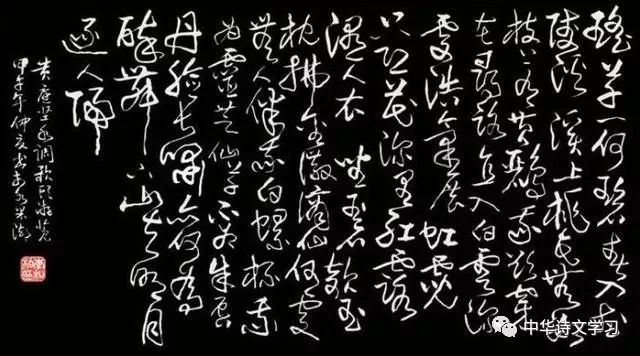 瑶草一何碧春入武
陵溪溪上桃花无数
枝上有黄鹂我欲穿
花寻路直入白云深
处浩气展虹霓
只恐花深里红露
湿人衣坐玉石欹玉
枕拂金徽谪仙何处
无人伴我白螺杯我
为灵芝仙草不为朱唇
丹脸长啸亦何为
醉舞下山去明月
逐人归
黄庭坚水调歌头游览
甲午年仲夏书
中华诗文学习